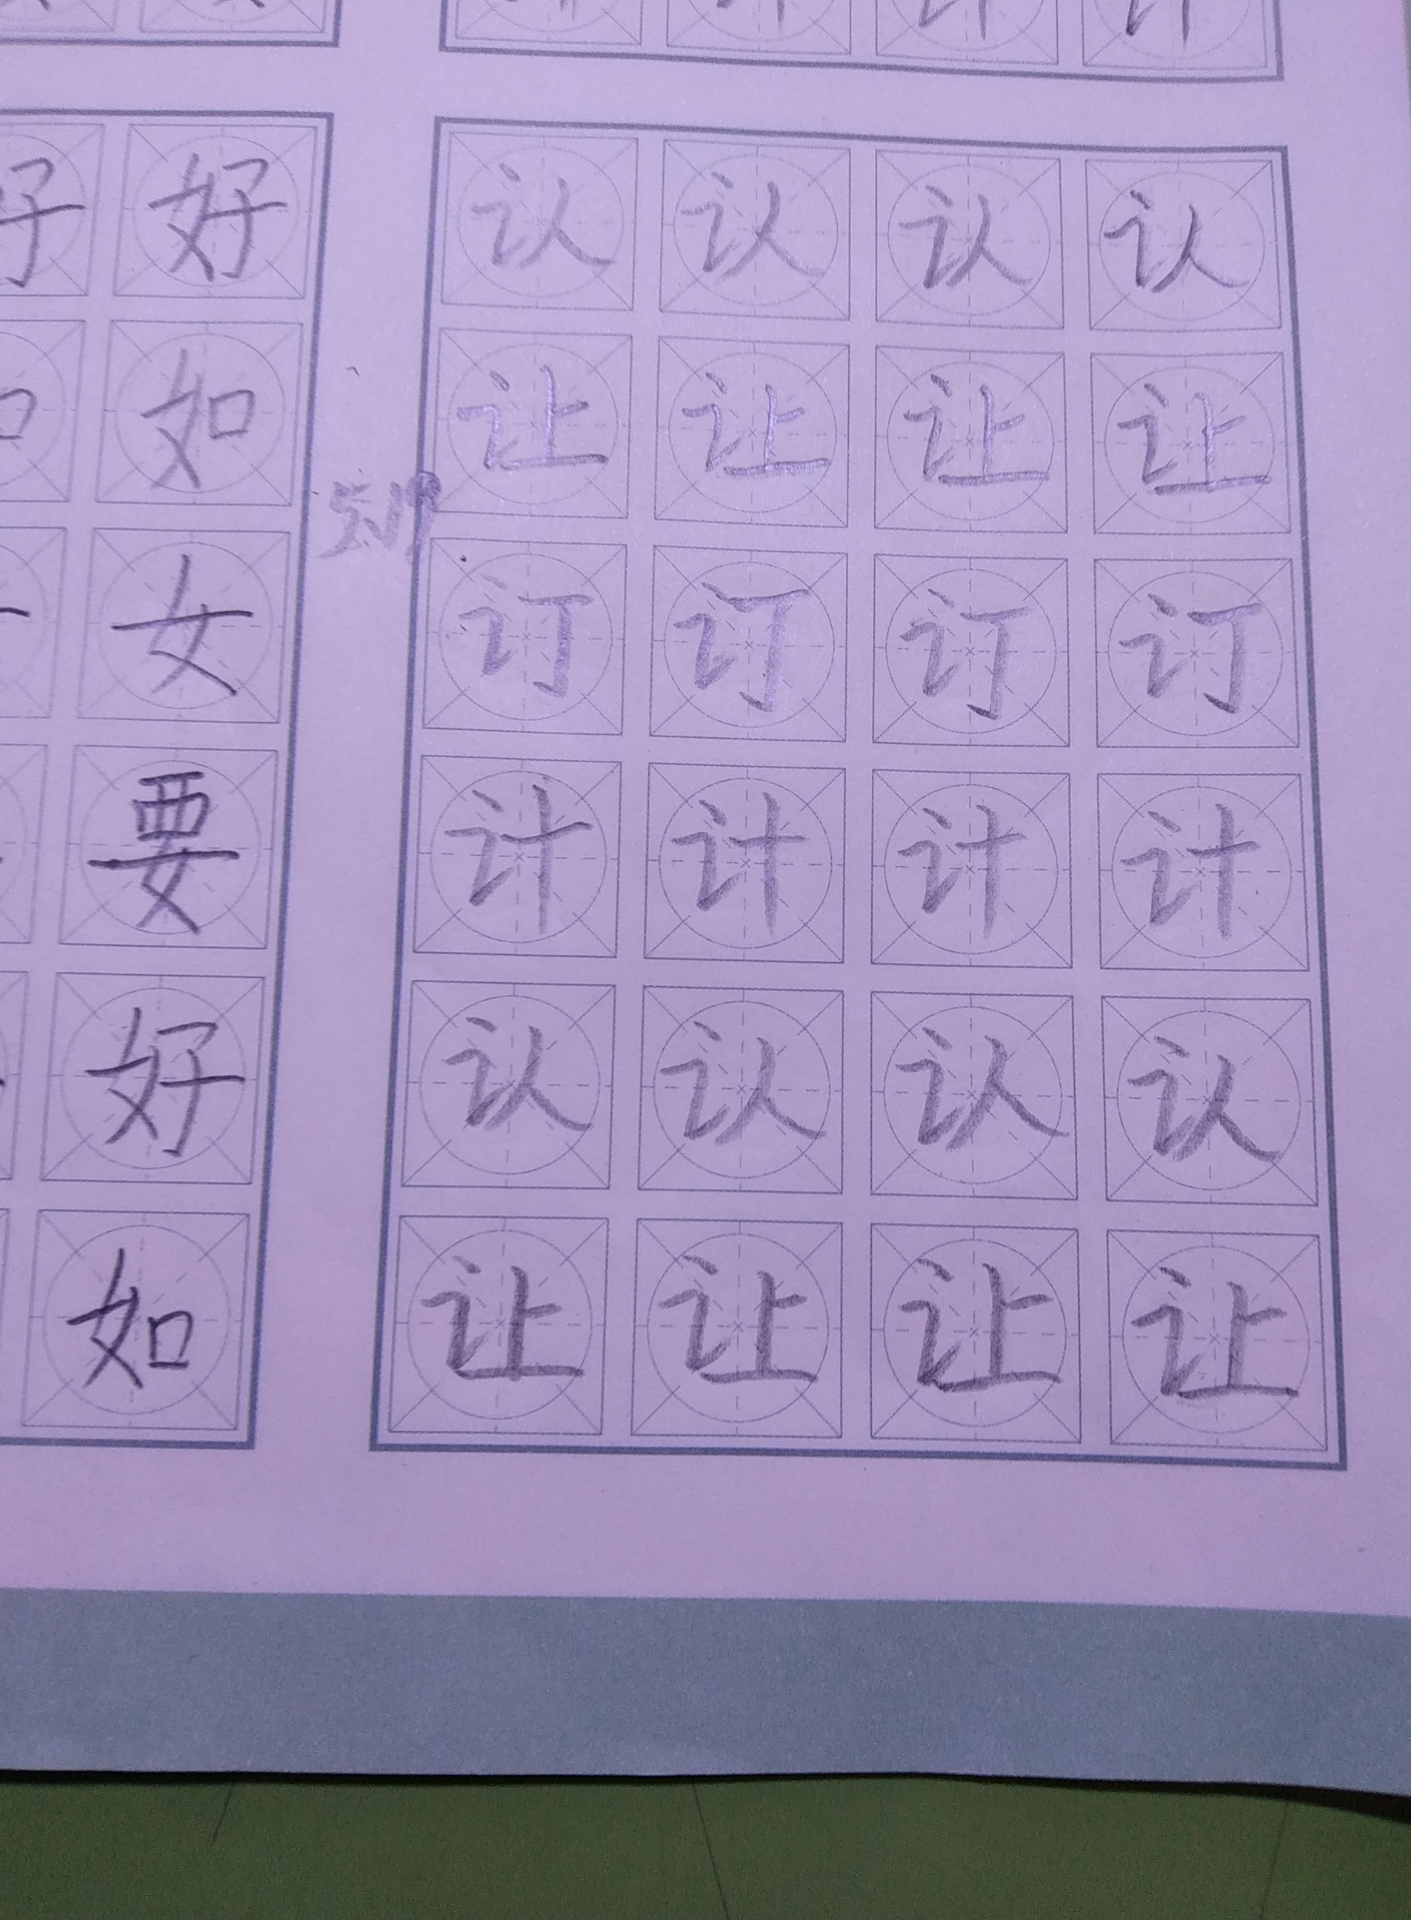 好 认 认 认 认
如 让 让 让 让
5.19
女 订 订 订 订
要 计 计 计 计
好 认 认 认 认
如 让 让 让 让